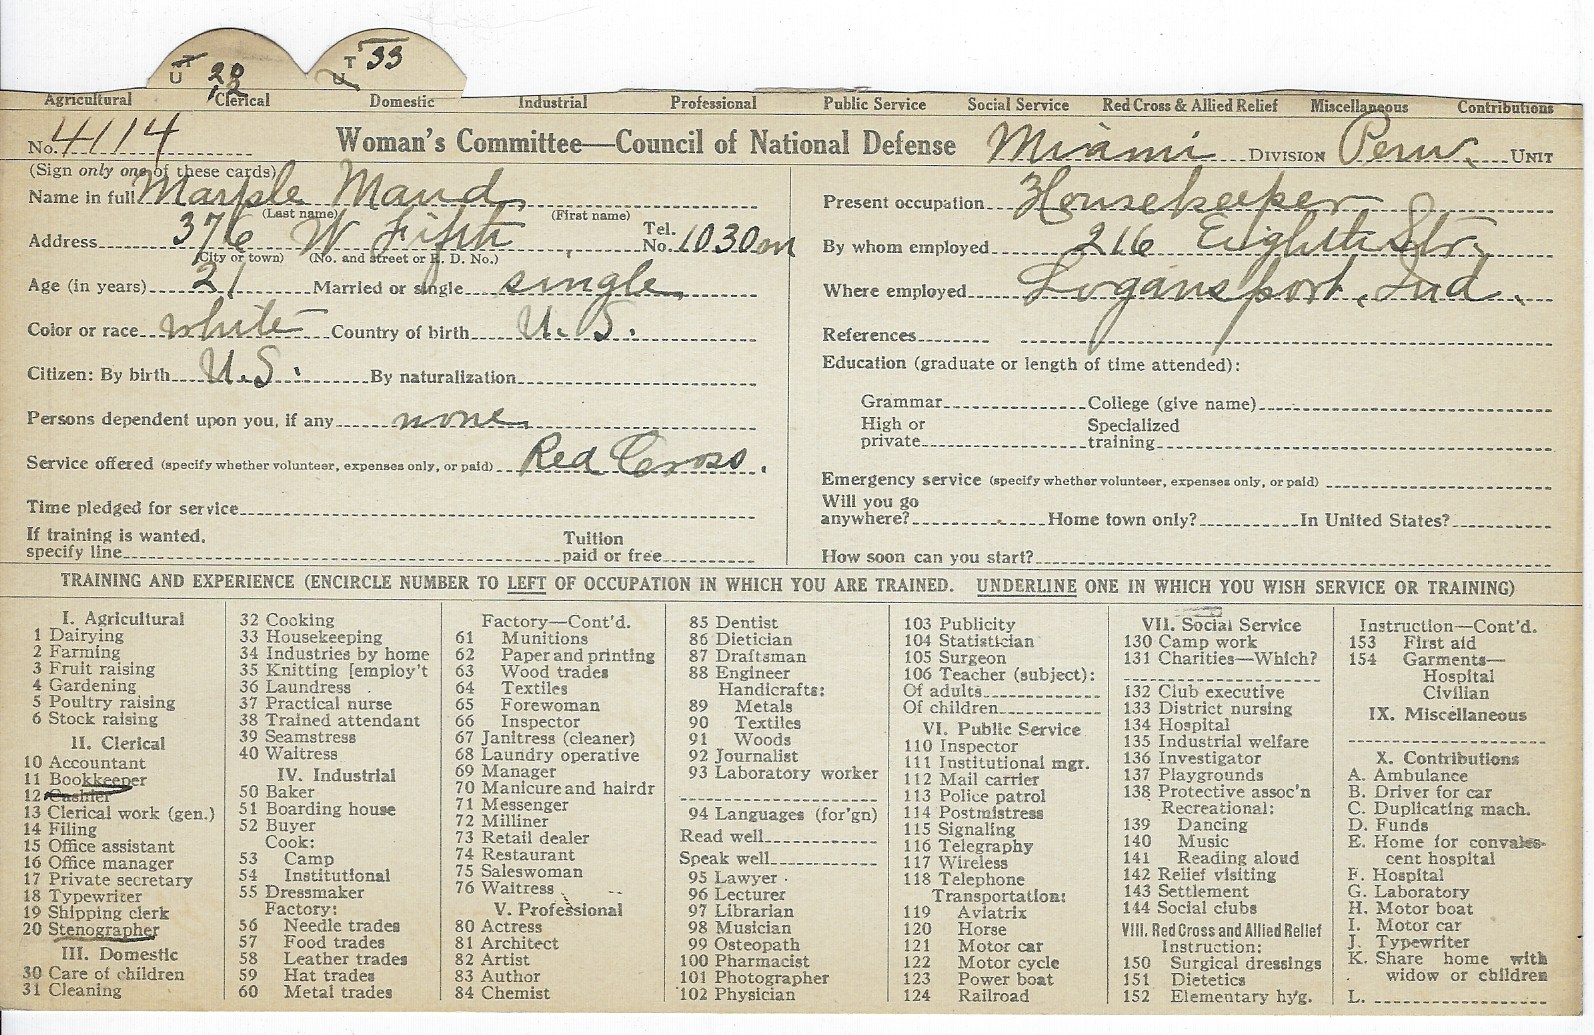 T U 20 12 T U 33
Agricultural Clerical Domestic Industrial Professional Public Service Social Service Red Cross & Allied Relief Miscellaneous Contributions
No. 4114 Woman's Committee—Council of National Defense Miami DIVISION Peru. UNIT
(Sign only one of these cards)
Name in full Marple Maud
(Last name) (First name)
Address 376 W Fifth Tel. No. 1030m
(City or town) (No. and street or R. D. No.)
Age (in years) 21 Married or single single
Color or race white Country of birth U. S.
Citizen: By birth U.S. By naturalization
Persons dependent upon you, if any none
Service offered (specify whether volunteer, expenses only, or paid) Red Cross.
Time pledged for service
If training is wanted, specify line Tuition paid or free
Present occupation Housekeeper
By whom employed 216 Eighth Str.
Where employed Logansport, Ind.
References
Education (graduate or length of time attended):
Grammar College (give name)
High or private Specialized training
Emergency service (specify whether volunteer, expenses only, or paid)
Will you go anywhere? Home town only? In United States?
How soon can you start?
TRAINING AND EXPERIENCE (ENCIRCLE NUMBER TO LEFT OF OCCUPATION IN WHICH YOU ARE TRAINED. UNDERLINE ONE IN WHICH YOU WISH SERVICE OR TRAINING)
I. Agricultural
1 Dairying
2 Farming
3 Fruit raising
4 Gardening
5 Poultry raising
6 Stock raising
II. Clerical
10 Accountant
11 Bookkeeper
12 Cashier
13 Clerical work (gen.)
14 Filing
15 Office assistant
16 Office manager
17 Private secretary
18 Typewriter
19 Shipping clerk
20 Stenographer
III. Domestic
30 Care of children
31 Cleaning
32 Cooking
33 Housekeeping
34 Industries by home
35 Knitting [employ't
36 Laundress
37 Practical nurse
38 Trained attendant
39 Seamstress
40 Waitress
IV. Industrial
50 Baker
51 Boarding house
52 Buyer
Cook:
53 Camp
54 Institutional
55 Dressmaker
Factory:
56 Needle trades
57 Food trades
58 Leather trades
59 Hat trades
60 Metal trades
Factory—Cont'd.
61 Munitions
62 Paper and printing
63 Wood trades
64 Textiles
65 Forewoman
66 Inspector
67 Janitress (cleaner)
68 Laundry operative
69 Manager
70 Manicure and hairdr
71 Messenger
72 Milliner
73 Retail dealer
74 Restaurant
75 Saleswoman
76 Waitress
V. Professional
80 Actress
81 Architect
82 Artist
83 Author
84 Chemist
85 Dentist
86 Dietician
87 Draftsman
88 Engineer
Handicrafts:
89 Metals
90 Textiles
91 Woods
92 Journalist
93 Laboratory worker
94 Languages (for'gn)
Read well
Speak well
95 Lawyer
96 Lecturer
97 Librarian
98 Musician
99 Osteopath
100 Pharmacist
101 Photographer
102 Physician
103 Publicity
104 Statistician
105 Surgeon
106 Teacher (subject):
Of adults
Of children
VI. Public Service
110 Inspector
111 Institutional mgr.
112 Mail carrier
113 Police patrol
114 Postmistress
115 Signaling
116 Telegraphy
117 Wireless
118 Telephone
Transportation:
119 Aviatrix
120 Horse
121 Motor car
122 Motor cycle
123 Power boat
124 Railroad
VII. Social Service
130 Camp work
131 Charities—Which?
132 Club executive
133 District nursing
134 Hospital
135 Industrial welfare
136 Investigator
137 Playgrounds
138 Protective assoc'n
Recreational:
139 Dancing
140 Music
141 Reading aloud
142 Relief visiting
143 Settlement
144 Social clubs
VIII. Red Cross and Allied Relief
Instruction:
150 Surgical dressings
151 Dietetics
152 Elementary hy'g.
Instruction—Cont'd.
153 First aid
154 Garments—
Hospital
Civilian
IX. Miscellaneous
X. Contributions
A. Ambulance
B. Driver for car
C. Duplicating mach.
D. Funds
E. Home for convales-
cent hospital
F. Hospital
G. Laboratory
H. Motor boat
I. Motor car
J. Typewriter
K. Share home with
widow or children
L.